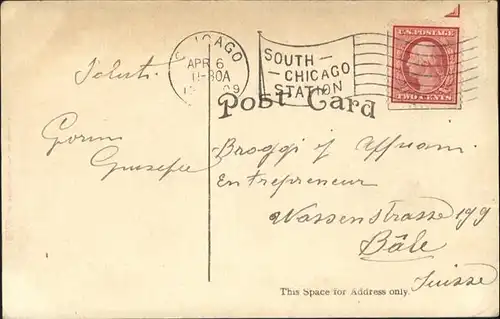 CHICAGO
APR 6
11-30A
1909
SOUTH-
-CHICAGO
STATION
U.S. POSTAGE
TWO CENTS
Post Card
Saluti
Giuseppe
Broggi
Entrepreneur
Wassenstrasse 199
Bâle
Suisse
This Space for Address only.